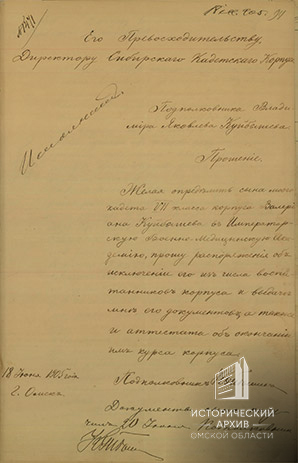 Его Превосходительству,
Директору Сибирскаго Кадетскаго Корпуса
Исполнено
Подполковника Влади
міра Яковлева Куйбышева
Прошеніе.
Желая опредѣлить сына моего
кадета VII класса корпуса Валері
ана Куйбышева въ Император
скую Военно-Медицинскую Ака
демію, прошу распоряженія объ
исключеніи его изъ числа воспи
танниковъ корпуса и выдачи
мнѣ его документовъ а также
и аттестата объ окончаніи
имъ курса корпуса
18 Іюня 1905 года
г. Омскъ.
Подполковникъ
Документы
ИСТОРИЧЕСКИЙ
АРХИВ
ОМСКОЙ ОБЛАСТИ